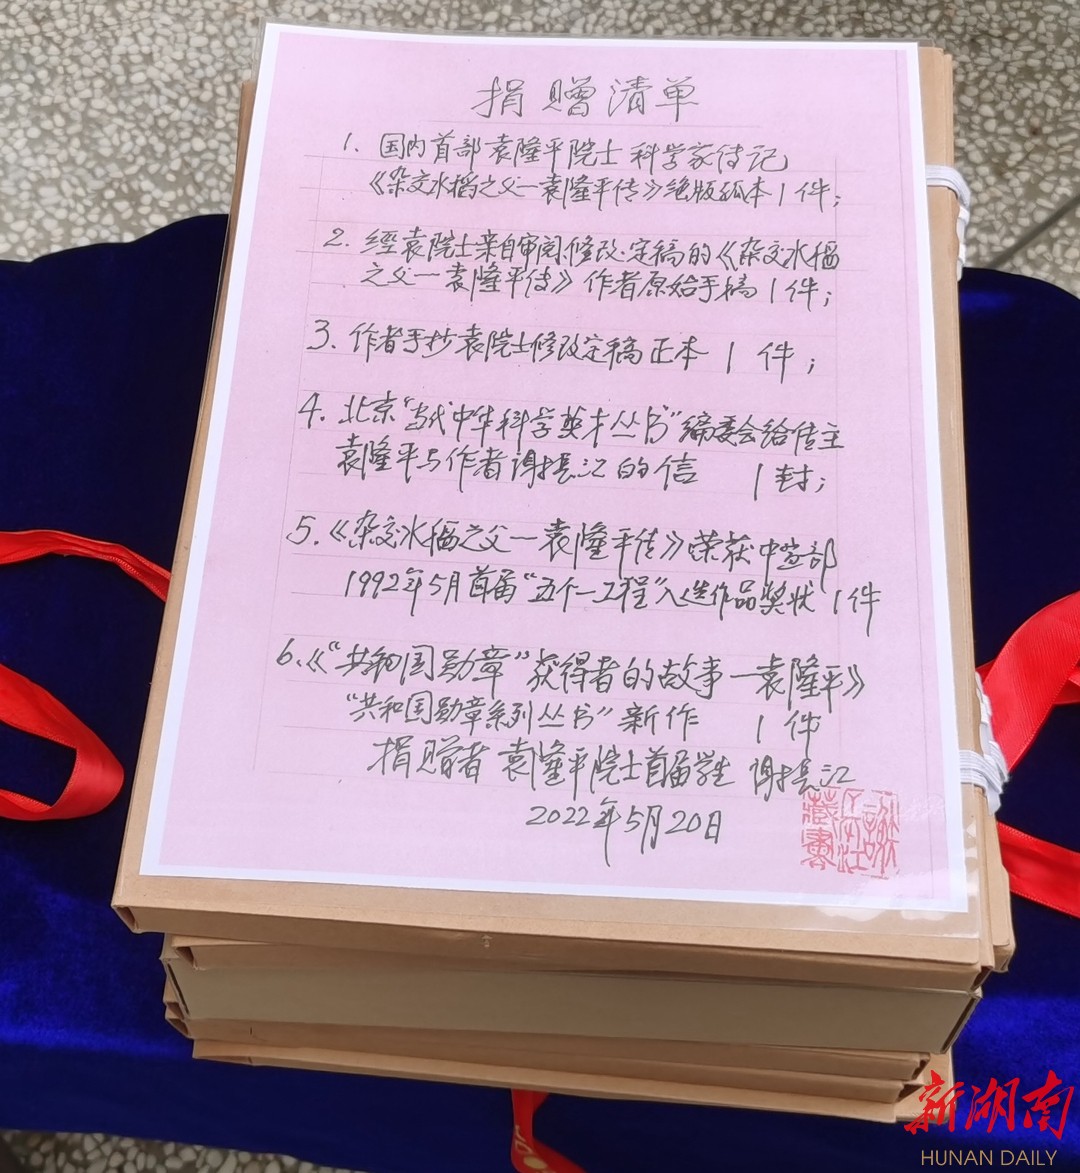 捐赠清单
1. 国内首部袁隆平院士科学家传记
《杂交水稻之父一袁隆平传》绝版孤本1件;
2. 经袁院士亲自审阅.修改.定稿的《杂交水稻
之父一袁隆平传》作者原始手稿1件;
3. 作者手抄袁院士修改定稿正本 1 件;
4. 北京"当代中华科学英才丛书"编委会给传主
袁隆平与作者谢长江的信 1封;
5.《杂交水稻之父一袁隆平传》荣获中宣部
1992年5月首届"五个一工程"入选作品奖状1件
6.《"共和国勋章"获得者的故事一袁隆平》
"共和国勋章系列丛书"新作 1件
捐赠者 袁隆平院士首届学生 谢长江
2022年5月20日
谢长江
藏书
新湖南
HUNAN DAILY